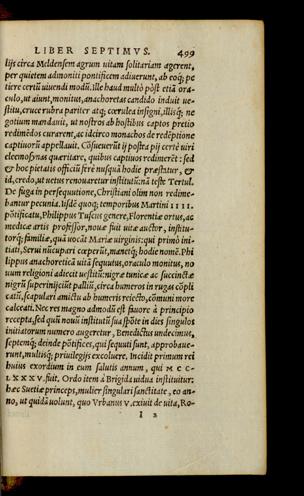 LIBER SEPTIMVS. 499
lijs circa Meldensem agrum uitam solitariam agerent,
per quietem admoniti pontificem adiuerunt, ab eoq; pe
tiere certū uiuendi modū. Ille haud multò pòst etiā ora-
culo, ut aiunt, monitus, anachoretas candido induit ue-
stitu, cruce rubra pariter atq; cœrulea insigni, illisq; ne
gotium mandauit, ut nostros ab hostibus captos pretio
redimēdos curarent, ac idcirco monachos de redēptione
captiuorū appellauit. Cōsueuerūt ij postea pij certè uiri
eleemosynas quæritare, quibus captiuos redimerēt: sed
& hoc pietatis officiū ferè nusquā hodie præstatur, &
id, credo, ut uetus renouaretur institutū: nā teste Tertul.
De fuga in persequutione, Christiani olim non redime-
bantur pecunia. Iisdē quoq; temporibus Martini IIII.
pōtificatu, Philippus Tuscus genere, Florentiæ ortus, ac
medicæ artis professor, nouæ fuit uitæ auctor, institu-
torq; familiæ, quā uocāt Mariæ uirginis: qui primò ini-
tiati, Serui nūcupari cœperūt, manetq; hodie nomē. Phi
lippus anachoreticā uitā sequutus, oraculo monitus, no
uum religioni adiecit uestitū: nigræ tunicæ ac succinctæ
nigrū superinijciūt palliū, circa humeros in rugas cōpli
catū, scapulari amictu ab humeris reiecto, cōmuni more
calceati. Nec res magno admodū est fauore à principio
recepta, sed quū nouū institutū sua spōte in dies singulos
initiatorum numero augeretur, Benedictus undecimus,
septemq; deinde pōtifices, qui sequuti sunt, approbaue-
runt, multisq; priuilegijs excoluere. Incidit primum rei
huius exordium in eum salutis annum, qui MCC-
LXXXV. fuit. Ordo item à Brigida uidua instituitur:
hæc Suetiæ princeps, mulier singulari sanctitate, eo an-
no, ut quidā uolunt, quo Vrbanus V. exiuit de uita, Ro-
I 2